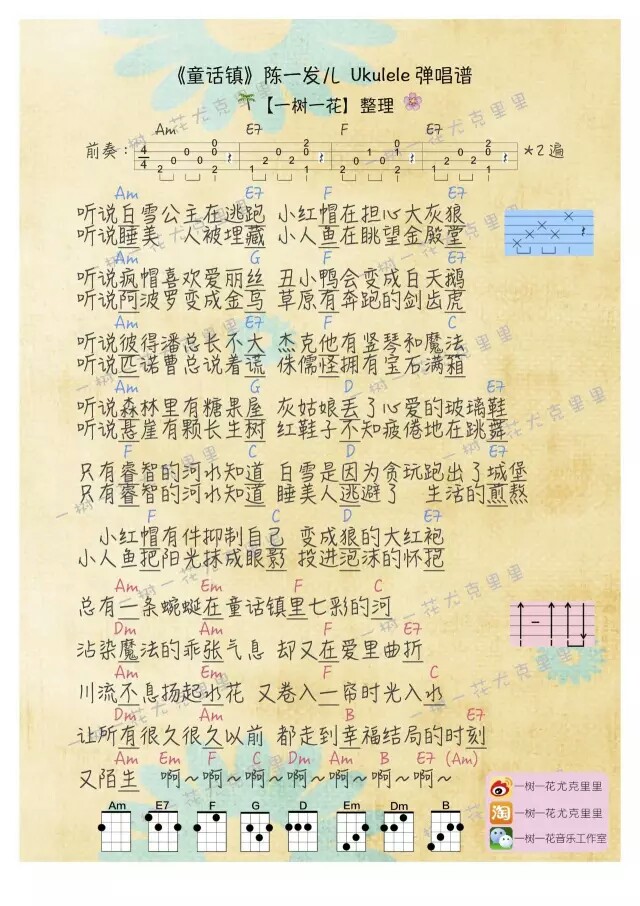 《童话镇》陈一发儿 Ukulele 弹唱谱
【一树一花】整理
Am E7 F E7
前奏: 4/4 *2遍
Am E7 F E7
听说白雪公主在逃跑 小红帽在担心大灰狼
听说睡美 人被埋藏 小人鱼在眺望金殿堂
Am G F G
听说疯帽喜欢爱丽丝 丑小鸭会变成白天鹅
听说阿波罗变成金乌 草原有奔跑的剑齿虎
Am G F C
听说彼得潘总长不大 杰克他有竖琴和魔法
听说匹诺曹总说着谎 侏儒怪拥有宝石满箱
Am G D E7
听说森林里有糖果屋 灰姑娘丢了心爱的玻璃鞋
听说悬崖有颗长生树 红鞋子不知疲倦地在跳舞
F C D E7
只有睿智的河水知道 白雪是因为贪玩跑出了城堡
只有睿智的河水知道 睡美人逃避了 生活的煎熬
F C D E7
小红帽有件抑制自己 变成狼的大红袍
小人鱼把阳光抹成眼影 投进泡沫的怀抱
Am Em F C
总有一条蜿蜒在童话镇里七彩的河
Dm Am F E7
沾染魔法的乖张气息 却又在爱里曲折
Am Em F C
川流不息扬起水花 又卷入一帘时光入水
Dm Am B E7
让所有很久很久以前 都走到幸福结局的时刻
Am Em F C Am Dm Am B E7 (Am)
又陌生 啊~啊~啊~啊~啊~啊~啊~
Am E7 F G D Em Dm B
一树一花尤克里里
淘 一树一花尤克里里
一树一花音乐工作室